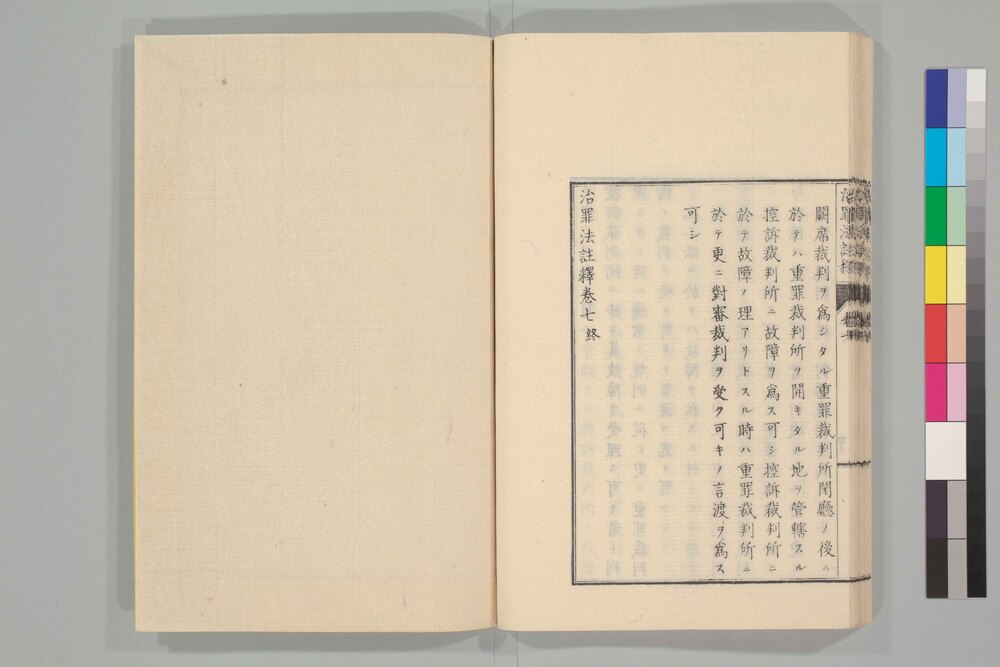 闕席裁判ヲ爲シタル重罪裁判所閉廳ノ後ニ
於テハ重罪裁判所ヲ開キタル地ヲ管轄スル
控訴裁判所ニ故障ヲ爲ス可シ控訴裁判所ニ
於テ故障ノ理アリトスル時ハ重罪裁判所ニ
於テ更ニ對審裁判ヲ受ク可キノ言渡ヲ爲ス
可シ
治罪法註釋卷七終